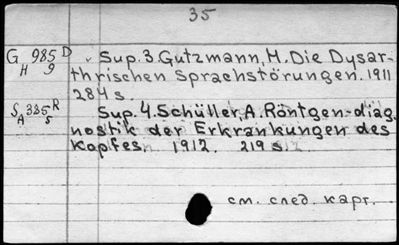 35
G 985 D Sup. 3. Gutzmann, H. Die Dysar-
H 9 thrischen Sprachstörungen. 1911
284 s.
S 385 R Sup. 4. Schüller, A. Röntgen-diag-
A 5 nostik der Erkrankungen des
Kopfes. 1912. 219 s.
см. след. карт.